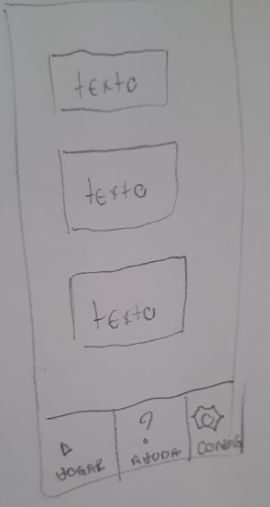 texto
texto
texto
JOGAR
?
AJUDA
CONFIG